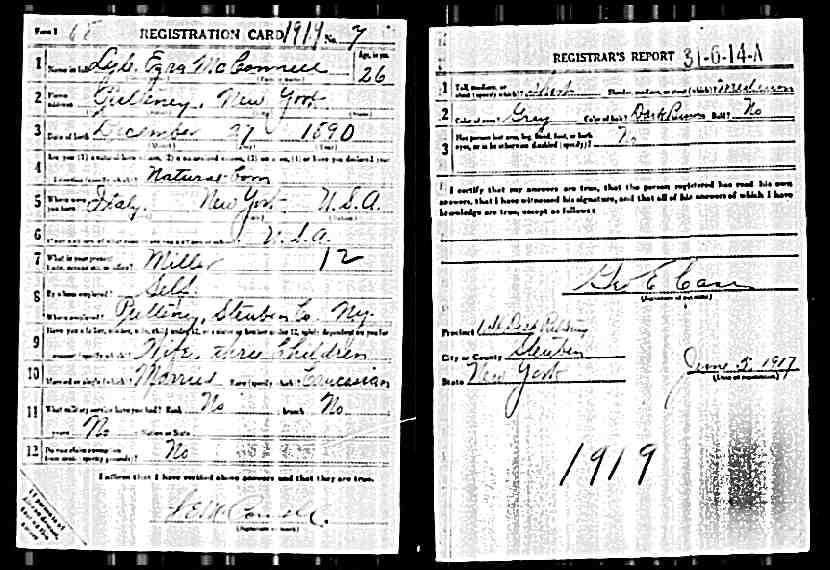 Form 1 REGISTRATION CARD 1919 No. 7
1 Name in full Lyle Ezra McConnell Age, in yrs. 26
(Family name)
2 Home address Pulteney, New York
3 Date of birth December 27 1890
(Month) (Day) (Year)
4 Are you (1) a natural-born citizen, (2) a naturalized citizen, (3) an alien, (4) or have you declared your
intention (specify which)? Natural-born
5 Where were you born? Italy. New York U.S.A.
6 U.S.A.
7 What is your present trade, occupation, or office? Miller 12
8 By whom employed? Self
Where employed? Pulteney, Steuben Co. Ny.
9 Have you a father, mother, wife, child under 12, or a sister or brother under 12, solely dependent on you for
support (specify which)? Wife, three Children
10 Married or single (which)? Married Race (specify which)? Caucasian
11 What military service have you had? Rank No ; branch No
; years No ; Nation or State
12 Do you claim exemption from draft (specify grounds)? No
I affirm that I have verified above answers and that they are true.
L E McConnell
(Signature or mark)
REGISTRAR'S REPORT 31-6-14-A
1 Tall, medium, or short (specify which)? Short Slender, medium, or stout (which)?
2 Color of eyes? Gray Color of hair? Dark Brown Bald? No
3 Has person lost arm, leg, hand, foot, or both
eyes, or is he otherwise disabled (specify)? No
I certify that my answers are true, that the person registered has read his own
answers, that I have witnessed his signature, and that all of his answers of which I have
knowledge are true, except as follows:
Geo E Carr
(Signature of registrar)
Precinct
City or County Steuben
State New York June 5, 1917
(Date of registration)
1919